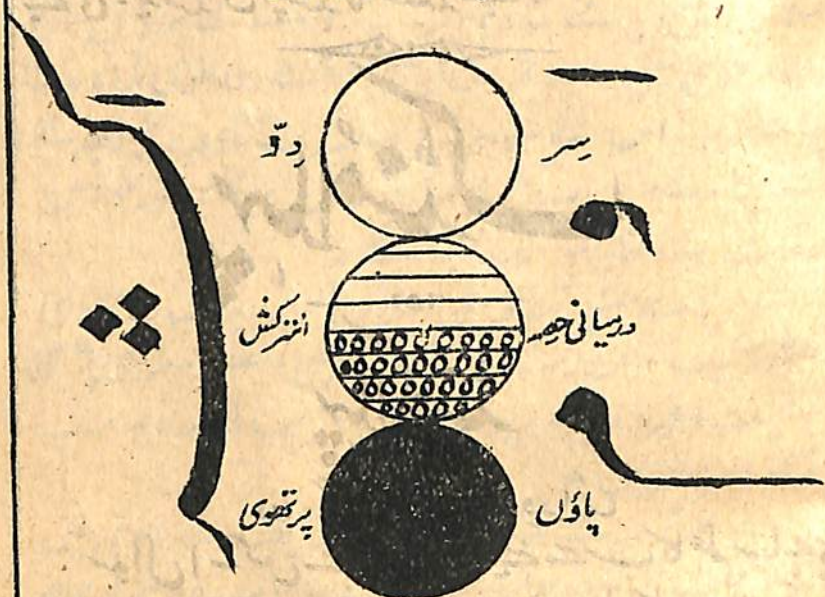 سِر دِوّ
درمیانی حصہ انترکش
پاؤں پرتھوی